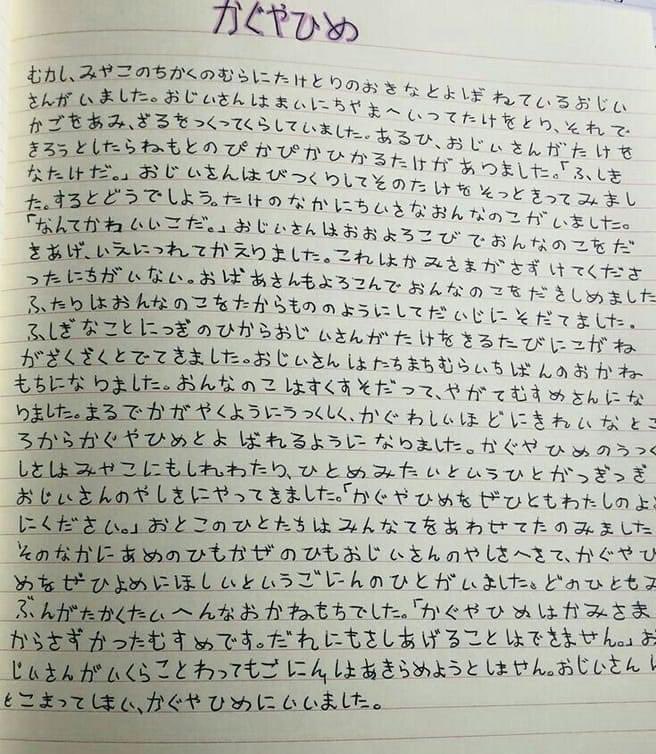 かぐやひめ
むかし、みやこのちかくのむらにたけとりのおきなとよばれているおじい
さんがいました。おじいさんはまいにちやまへいってたけをとり、それで
かごをあみ、ざるをつくってくらしていました。あるひ、おじいさんがたけを
きろうとしたらねもとのぴかぴかひかるたけがありました。「ふしき
なたけだ。」おじいさんはびつくりしてそのたけをそっときってみまし
た。するとどうでしよう。たけのなかにちいさなおんなのこがいました。
「なんてかわいいこだ。」おじいさんはおおよろこびでおんなのこをだ
きあげ、いえにつれてかえりました。これはかみさまがさずけてくださ
ったにちがいない。おばあさんもよろこんでおんなのこをだきしめました
ふたりはおんなのこをたからもののようにしてだいじにそだてました。
ふしぎなことにつぎのひからおじいさんがたけをきるたびにこがね
がざくざくとでてきました。おじいさんはたちまちむらいちばんのおかね
もちになりました。おんなのこはすくすそだって、やがてむすめさんにな
りました。まるでかがやくようにうつくしく、かぐわしいほどにきれいなとこ
ろからかぐやひめとよばれるようになりました。かぐやひめのうつく
しさはみやこにもしれわたり、ひとめみたいというひとがつぎつぎ
おじいさんのやしきにやってきました。「かぐやひめをぜひともわたしのよ
にください。」おとこのひとたちはみんなてをあわせてたのみました
そのなかにあめのひもかぜのひもおじいさんのやしきへきて、かぐやひ
めをぜひよめにほしいというごにんのひとがいました。どのひともみ
ぶんがたかくたいへんなおかねもちでした。「かぐやひめはかみさま
からさずかったむすめです。だれにもさしあげることはできません。」お
じいさんがいくらことわってもごにんはあきらめようとしません。おじいさんは
とこまってしまい、かぐやひめにいいました。